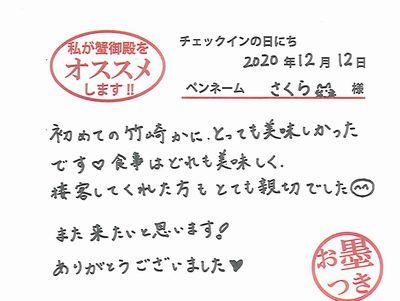 私が蟹御殿を
オススメ
します!!
チェックインの日にち
2020年12月12日
ペンネーム さくら 様
初めての竹崎かに、とっても美味しかった
です♡食事はどれも美味しく、
接客してくれた方もとても親切でした
また来たいと思います!
ありがとうございました♥
お墨
つき